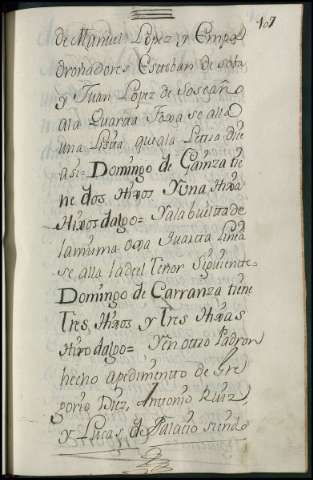 107
de Manuel Lopez y Empa
dronadores Esteban de Sosa
y Juan Lopez de Sosgañ
ala Quarta Foxa se alla
una Linia que ala Letra dize
asi= Domingo de Gainza tie
ne dos Hixos Y Una Hixa
Hixos dalgo= Y ala buelta de
la misma oxa Quarta Linia
se alla la del Tenor Siguiente=
Domingo de Carranza tiene
Tres, Hixos y Tres Hixas
Hixo dalgo= Y en otro Padron
hecho a pedimento de Gre
gorio Diez, Antonio Ruiz,
y Lucas de Palacio siendo